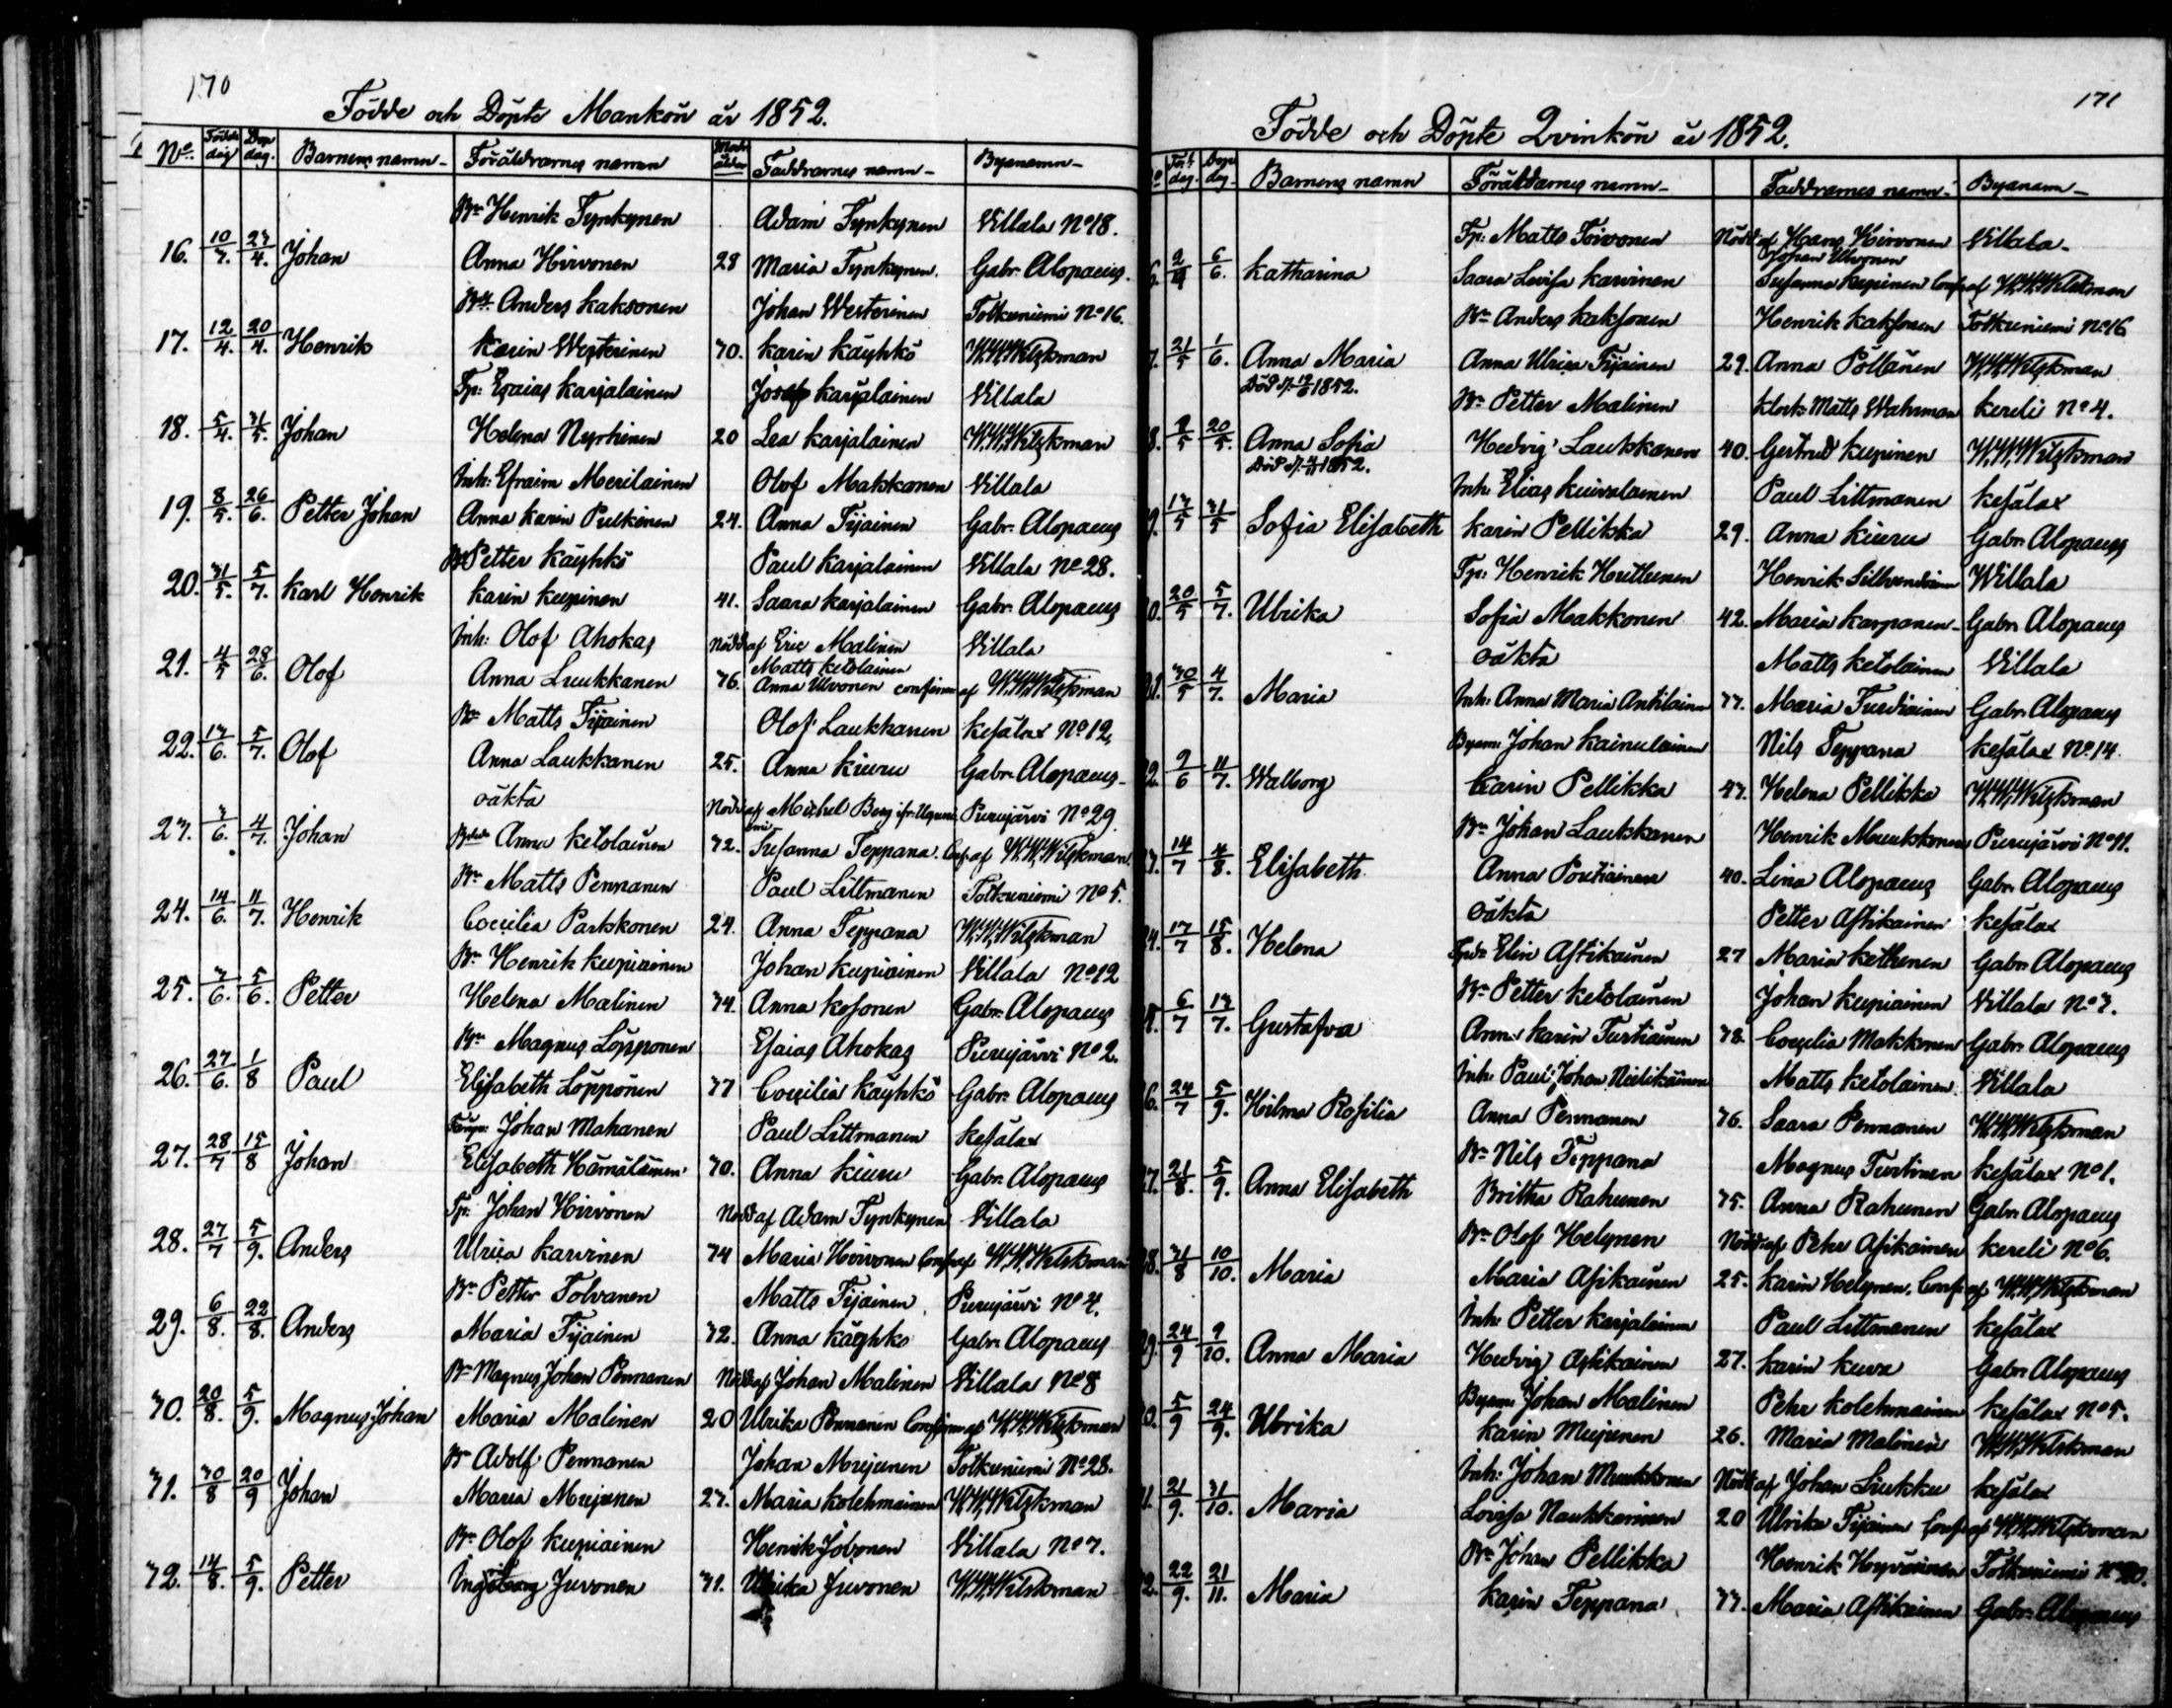 170
Födde och Döpte Mankön år 1852.
No. Födde dag Dop dag. Barnens namn Föräldrarnes namn Modr. ålder Faddrarnes namn Byanamn
Bn Henrik Tynkynen Adam Tynkynen Villala No 18.
16. 10/3. 23/4. Johan Anna Hirvonen 28 Maria Tynkynen. Gabr. Alopaeus.
Bn Anders Kaksonen Johan Westerinen Totkuniemi No 16.
17. 12/4. 20/4. Henrik Karin Westerinen 30. Karin Käyhkö W.W. Witzkman
Tp: Esaias Karjalainen Josef Karjalainen Villala
18. 5/4. 31/5. Johan Helena Nyrhinen 20 Lea Karjalainen W.W. Witzkman
Inh: Efraim Meriläinen Olof Makkonen Villala
19. 8/5. 26/6. Petter Johan Anna Karin Pulkinen 24. Anna Tijainen Gabr. Alopaeus
Bn Petter Käyhkö Paul Karjalainen Villala No 28.
20. 31/5. 5/7. Karl Henrik Karin Kupinen 41. Saara Karjalainen Gabr. Alopaeus
Inh: Olof Ahokas Nödd. af Eric Malinen Villala
Matts Ketolainen
21. 4/5 28/6. Olof Anna Luukkanen 36. Anna Ulvonen confirm af W.W. Witzkman
Bn Matts Tijainen Olof Laukkanen Kesälax No 12,
22. 13/6. 5/7. Olof Anna Laukkanen 25. Anna Kiuru Gabr. Alopaeus
oäkta Nödd af Michel Borg Purujärvi No 29.
23. 3/6. 4/7. Johan Anna Ketolainen 32. Susanna Teppana. Conf. af W.W. Witzkman
Bn Matts Pennanen Paul Littmanen Totkuniemi No 5.
24. 14/6. 11/7. Henrik Coecilia Parkkonen 24. Anna Teppana W.W. Witzkman
Bn Henrik Kupiainen Johan Kupiainen Villala No 12
25. 3/6. 5/6. Petter Helena Malinen 34. Anna Kosonen Gabr. Alopaeus
Bn Magnus Löpponen Esaias Ahokas Purujärvi No 2.
26. 27/6. 1/8 Paul Elisabeth Löpponen 37 Coecilia Käyhkö Gabr. Alopaeus
Johan Mahanen Paul Littmanen Kesälax
27. 28/7 15/8 Johan Elisabeth Hämäläinen 30. Anna Kiuru Gabr. Alopaeus
Tp: Johan Hirvonen Nödd af Adam Tynkynen Villala
28. 27/7 5/9. Anders Ulrica Karvinen 34 Maria Hirvonen Conf af W.W. Witzkman
Bn Petter Tolvanen Matts Tijainen Purujärvi No 4.
29. 6/8. 22/8. Anders Maria Tijainen 32. Anna Käyhkö Gabr. Alopaeus
Bn Magnus Johan Pennanen Nödd af Johan Malinen Villala No 8
30. 20/8. 5/9. Magnus Johan Maria Malinen 20 Ulrika Pennanen Confirm af W.W. Witzkman
Bn Adolf Pennanen Johan Mujunen Totkuniemi No 28.
31. 30/8 20/9 Johan Maria Mujunen 23. Maria Kolehmainen W.W. Witzkman
Bn Olof Kupiainen Henrik Jovonen Villala No 7.
32. 14/8. 5/9. Petter Ingeborg Juvonen 31. Ulrika Juvonen W.W. Witzkman
171
Födde och Döpte Qvinkön år 1852.
Föd. dag. Dop dag. Barnens namn Föräldarnes namn Faddrarnes namn Byanamn
Tp: Matts Toivonen Nödd af Hans Hirvonen Villala
Johan Ulvonen
6/6. Katharina Saara Lovisa Karvinen Susanna Kupinen Conf af W.W. Witzkman
Bn Anders Kaksonen Henrik Kaksonen Totkuniemi No 16
7. 21/5 1/6. Anna Maria Anna Ulrica Tijainen 29. Anna Pöllänen W.W. Witzkman
Död d. 1852.
Bn Petter Malinen Klock: Matts Wahrman Kereli No 4.
8. 9/5 20/5. Anna Sofia Hedvig Laukkanen 40. Gertrud Kupinen W.W. Witzkman
Död d. 1852.
Inh. Elias Kuivalainen Paul Littmanen Kesälax
9. 13/5 31/5 Sofia Elisabeth Karin Pellikka 29. Anna Kiuru Gabr. Alopaeus
Tp: Henrik Huttunen Henrik Silvendoinen Willala
0. 20/5 5/7. Ulrika Sofia Makkonen 42. Maria Karpanen Gabr. Alopaeus
oäkta Matts Ketolainen Villala
30/5 4/7. Maria Inh: Anna Maria Antilainen 37. Maria Turtiainen Gabr. Alopaeus
Johan Kainulainen Nils Teppana Kesälax No 14.
2. 9/6 11/7. Walborg Karin Pellikka 43. Helena Pellikka W.W. Witzkman
Bn Johan Laukkanen Henrik Muukkonen Purujärvi No 11.
3. 14/7 4/8. Elisabeth Anna Pontiainen 40. Lina Alopaeus Gabr. Alopaeus
oäkta Petter Astikainen Kesälax
4. 17/7 15/8. Helena Elin Astikainen 27 Maria Kethunen Gabr. Alopaeus
Bn Petter Ketolainen Johan Kupiainen Villala No 3.
6/7 13/7. Gustafva Anna Karin Turtiainen 38. Coecilia Makkonen Gabr. Alopaeus
Inh: Paul Johan Nielikäinen Matts Ketolainen Villala
6. 24/7 5/9. Hilma Rosilia Anna Pennanen 36. Saara Pennanen W.W. Witzkman
Bn Nils Teppana Magnus Turtinen Kesälax No 1.
7. 21/8. 5/9. Anna Elisabeth Britha Rahunen 35. Anna Rahunen Gabr. Alopaeus
Bn Olof Helynen Nödd af Pehr Asikainen Kereli No 6.
8. 31/8 10/10. Maria Maria Asikainen 25. Karin Helynen. Conf. af W.W. Witzkman
Inh. Petter Karjalainen Paul Littmanen Kesälax
9. 24/9 9/10. Anna Maria Hedvig Astikainen 27. Karin Kuva Gabr. Alopaeus
Johan Malinen Pehr Kolehmainen Kesälax No 5.
5/9 24/9. Ulrika Karin Mujunen 26. Maria Malinen W.W. Witzkman
Inh: Johan Muukkonen Nödd af Johan Liukku Kesälax
21/9. 31/10. Maria Lovisa Naukkarinen 20 Ulrika Tijainen Conf af W.W. Witzkman
Bn Johan Pellikka Henrik Hoyväinen Totkuniemi No 20.
2. 22/9. 21/11. Maria Karin Teppana 33. Maria Astikainen Gabr. Alopaeus